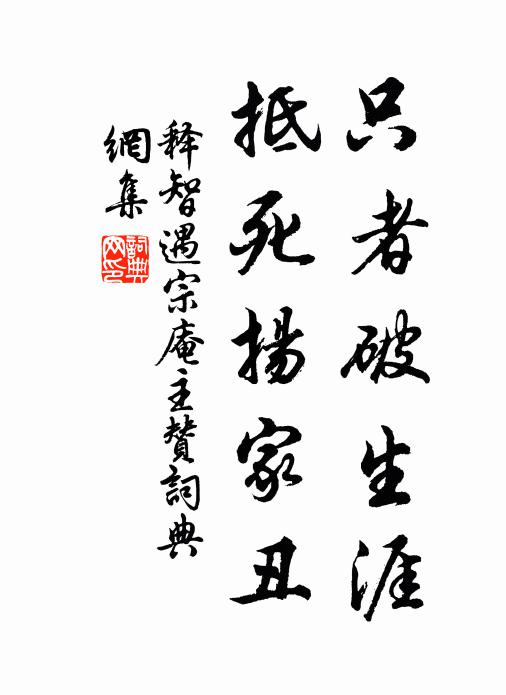 只者破生涯
抵死揚家丑
释智遇宗庵主赞詞典
網集
詞典
网印